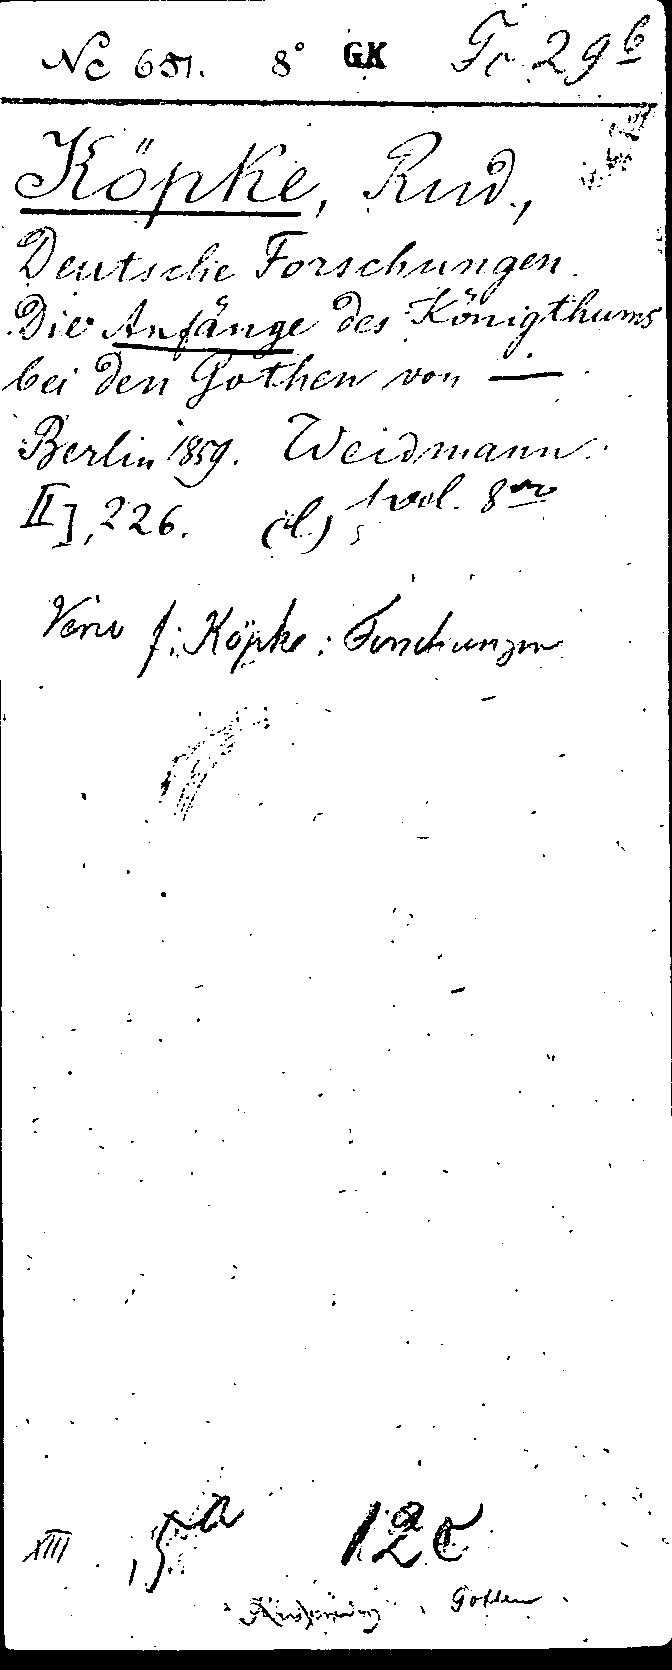 Nc 651. 8° GK Fc 29 b
Köpke, Rud.,
Deutsche Forschungen.
Die Anfänge des Königthums
bei den Gothen von —
Berlin 1859. Weidmann.
II], 226. (d.) 1 vol. 8vo
Verw f: Köpke: Forschungen
XIII 5a 12c
Gothen